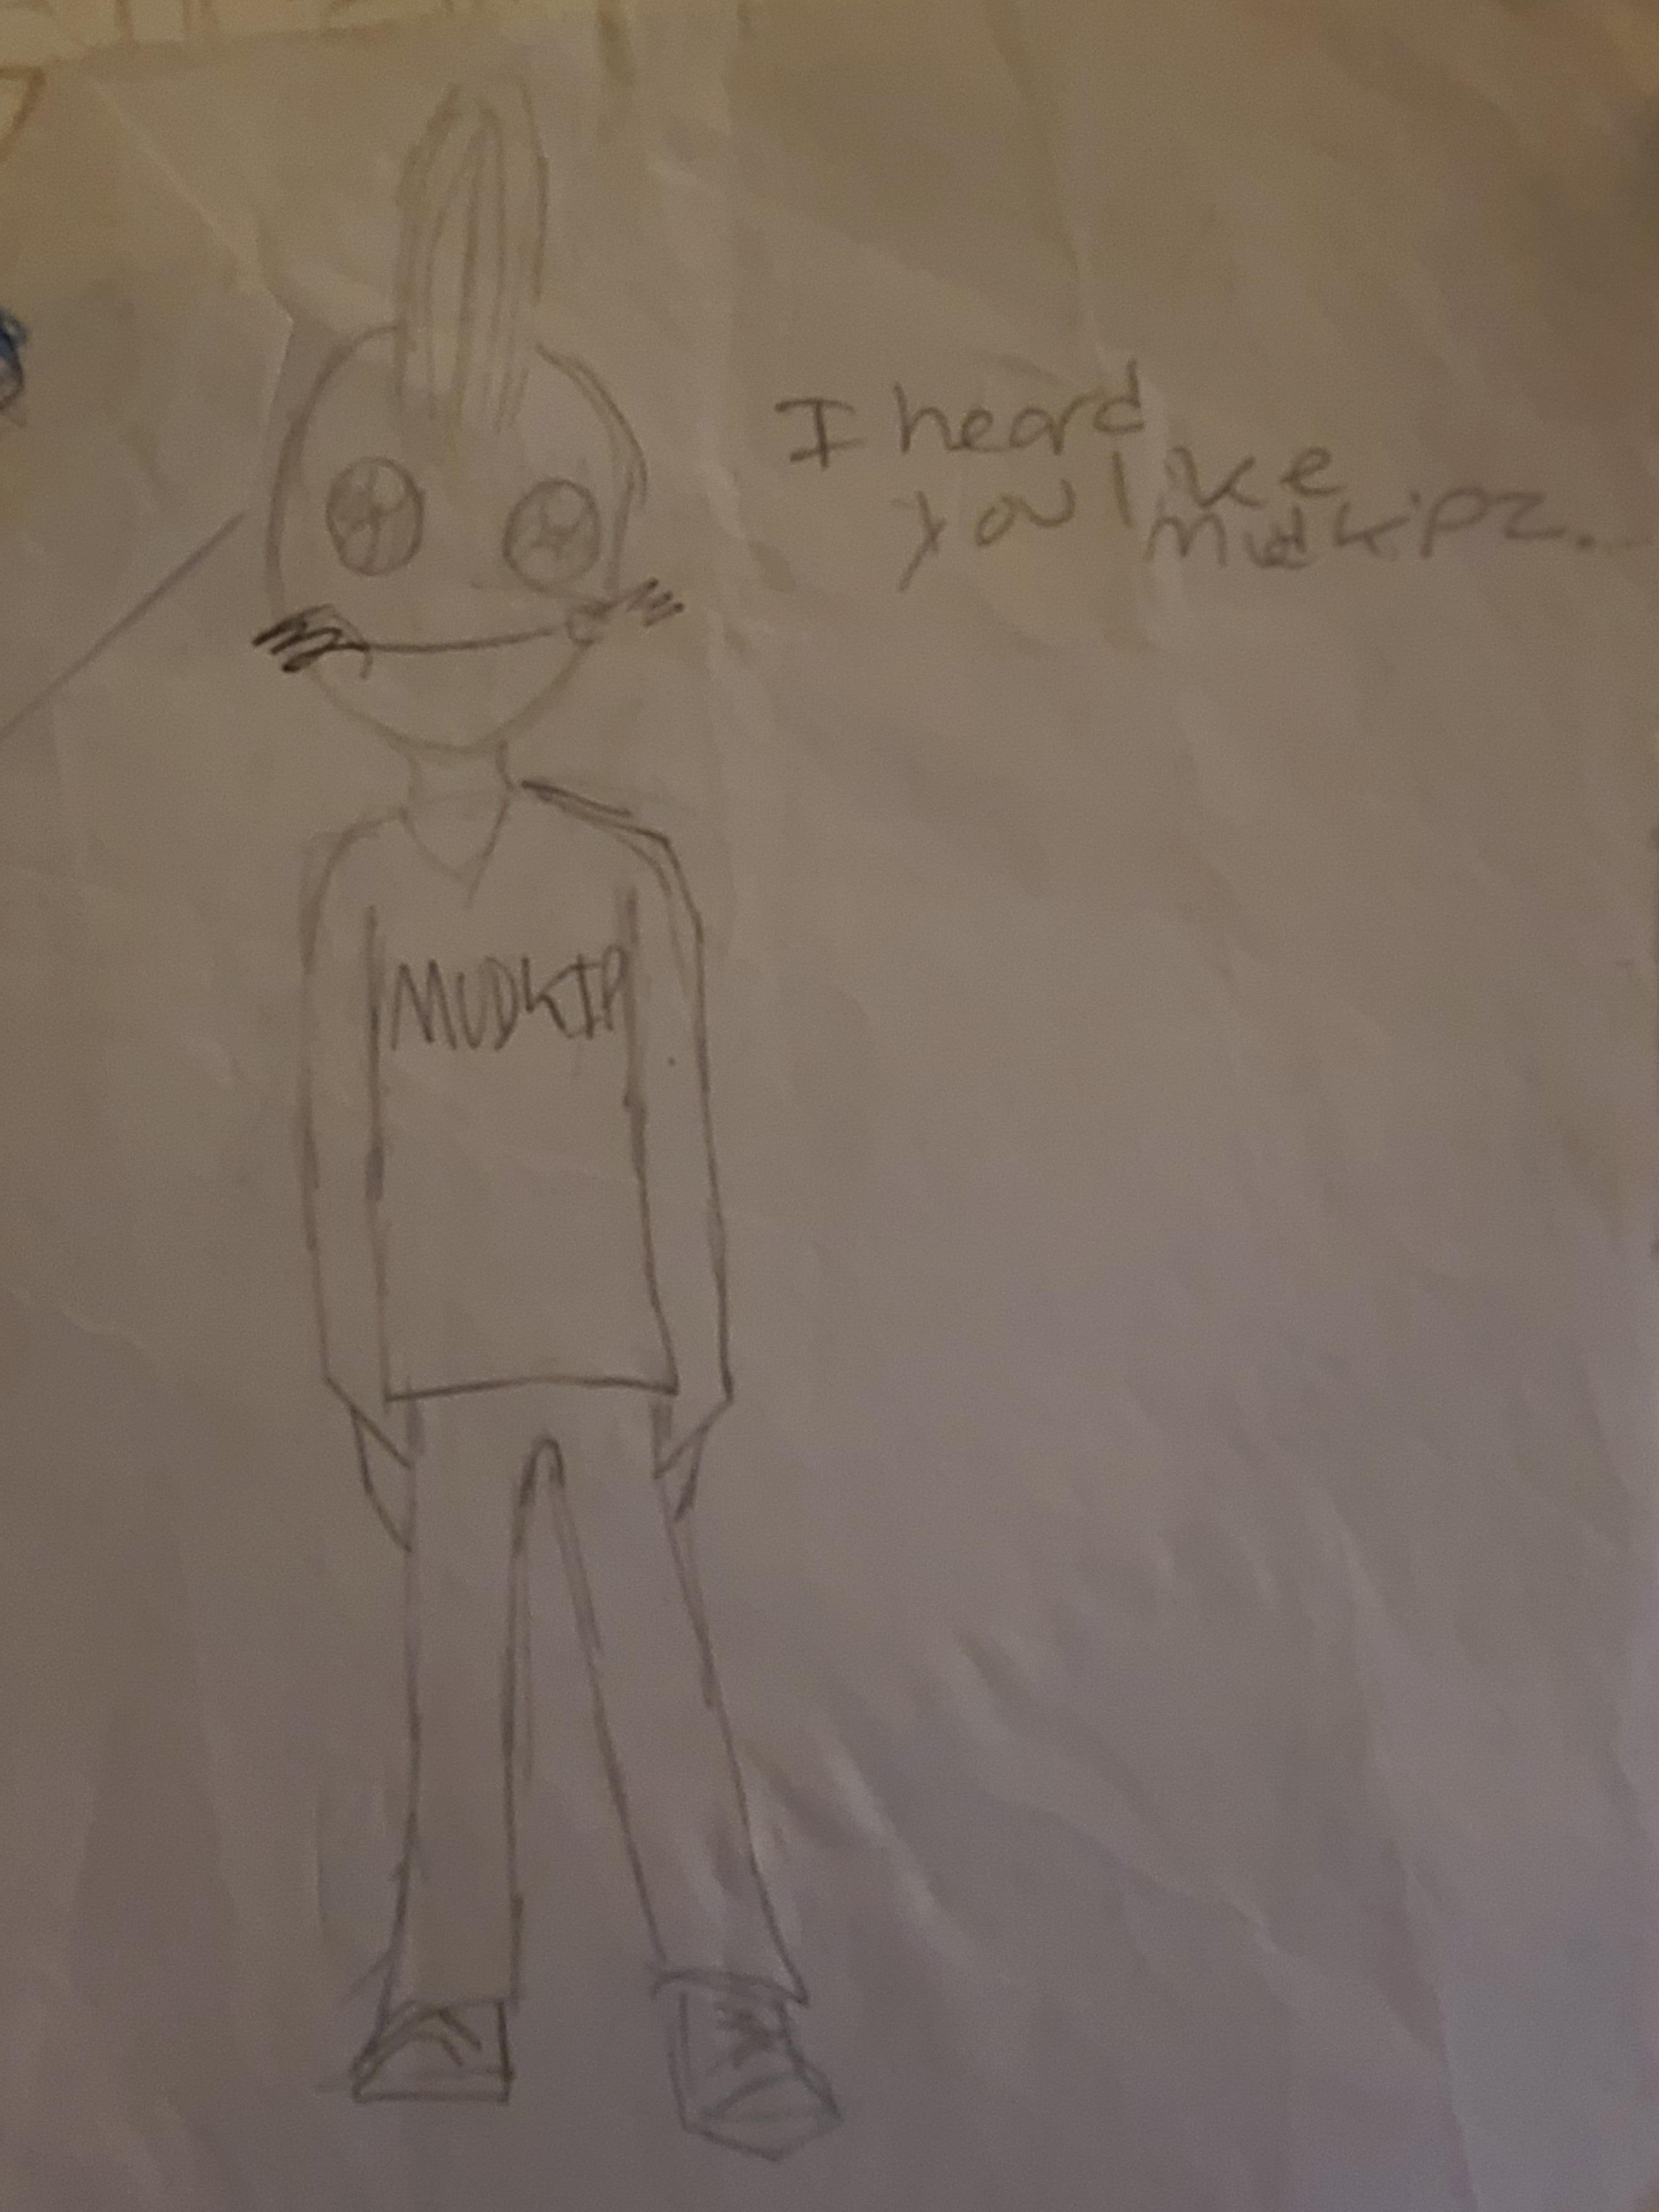 I heard
you like
mudkipz.
MUDKIP